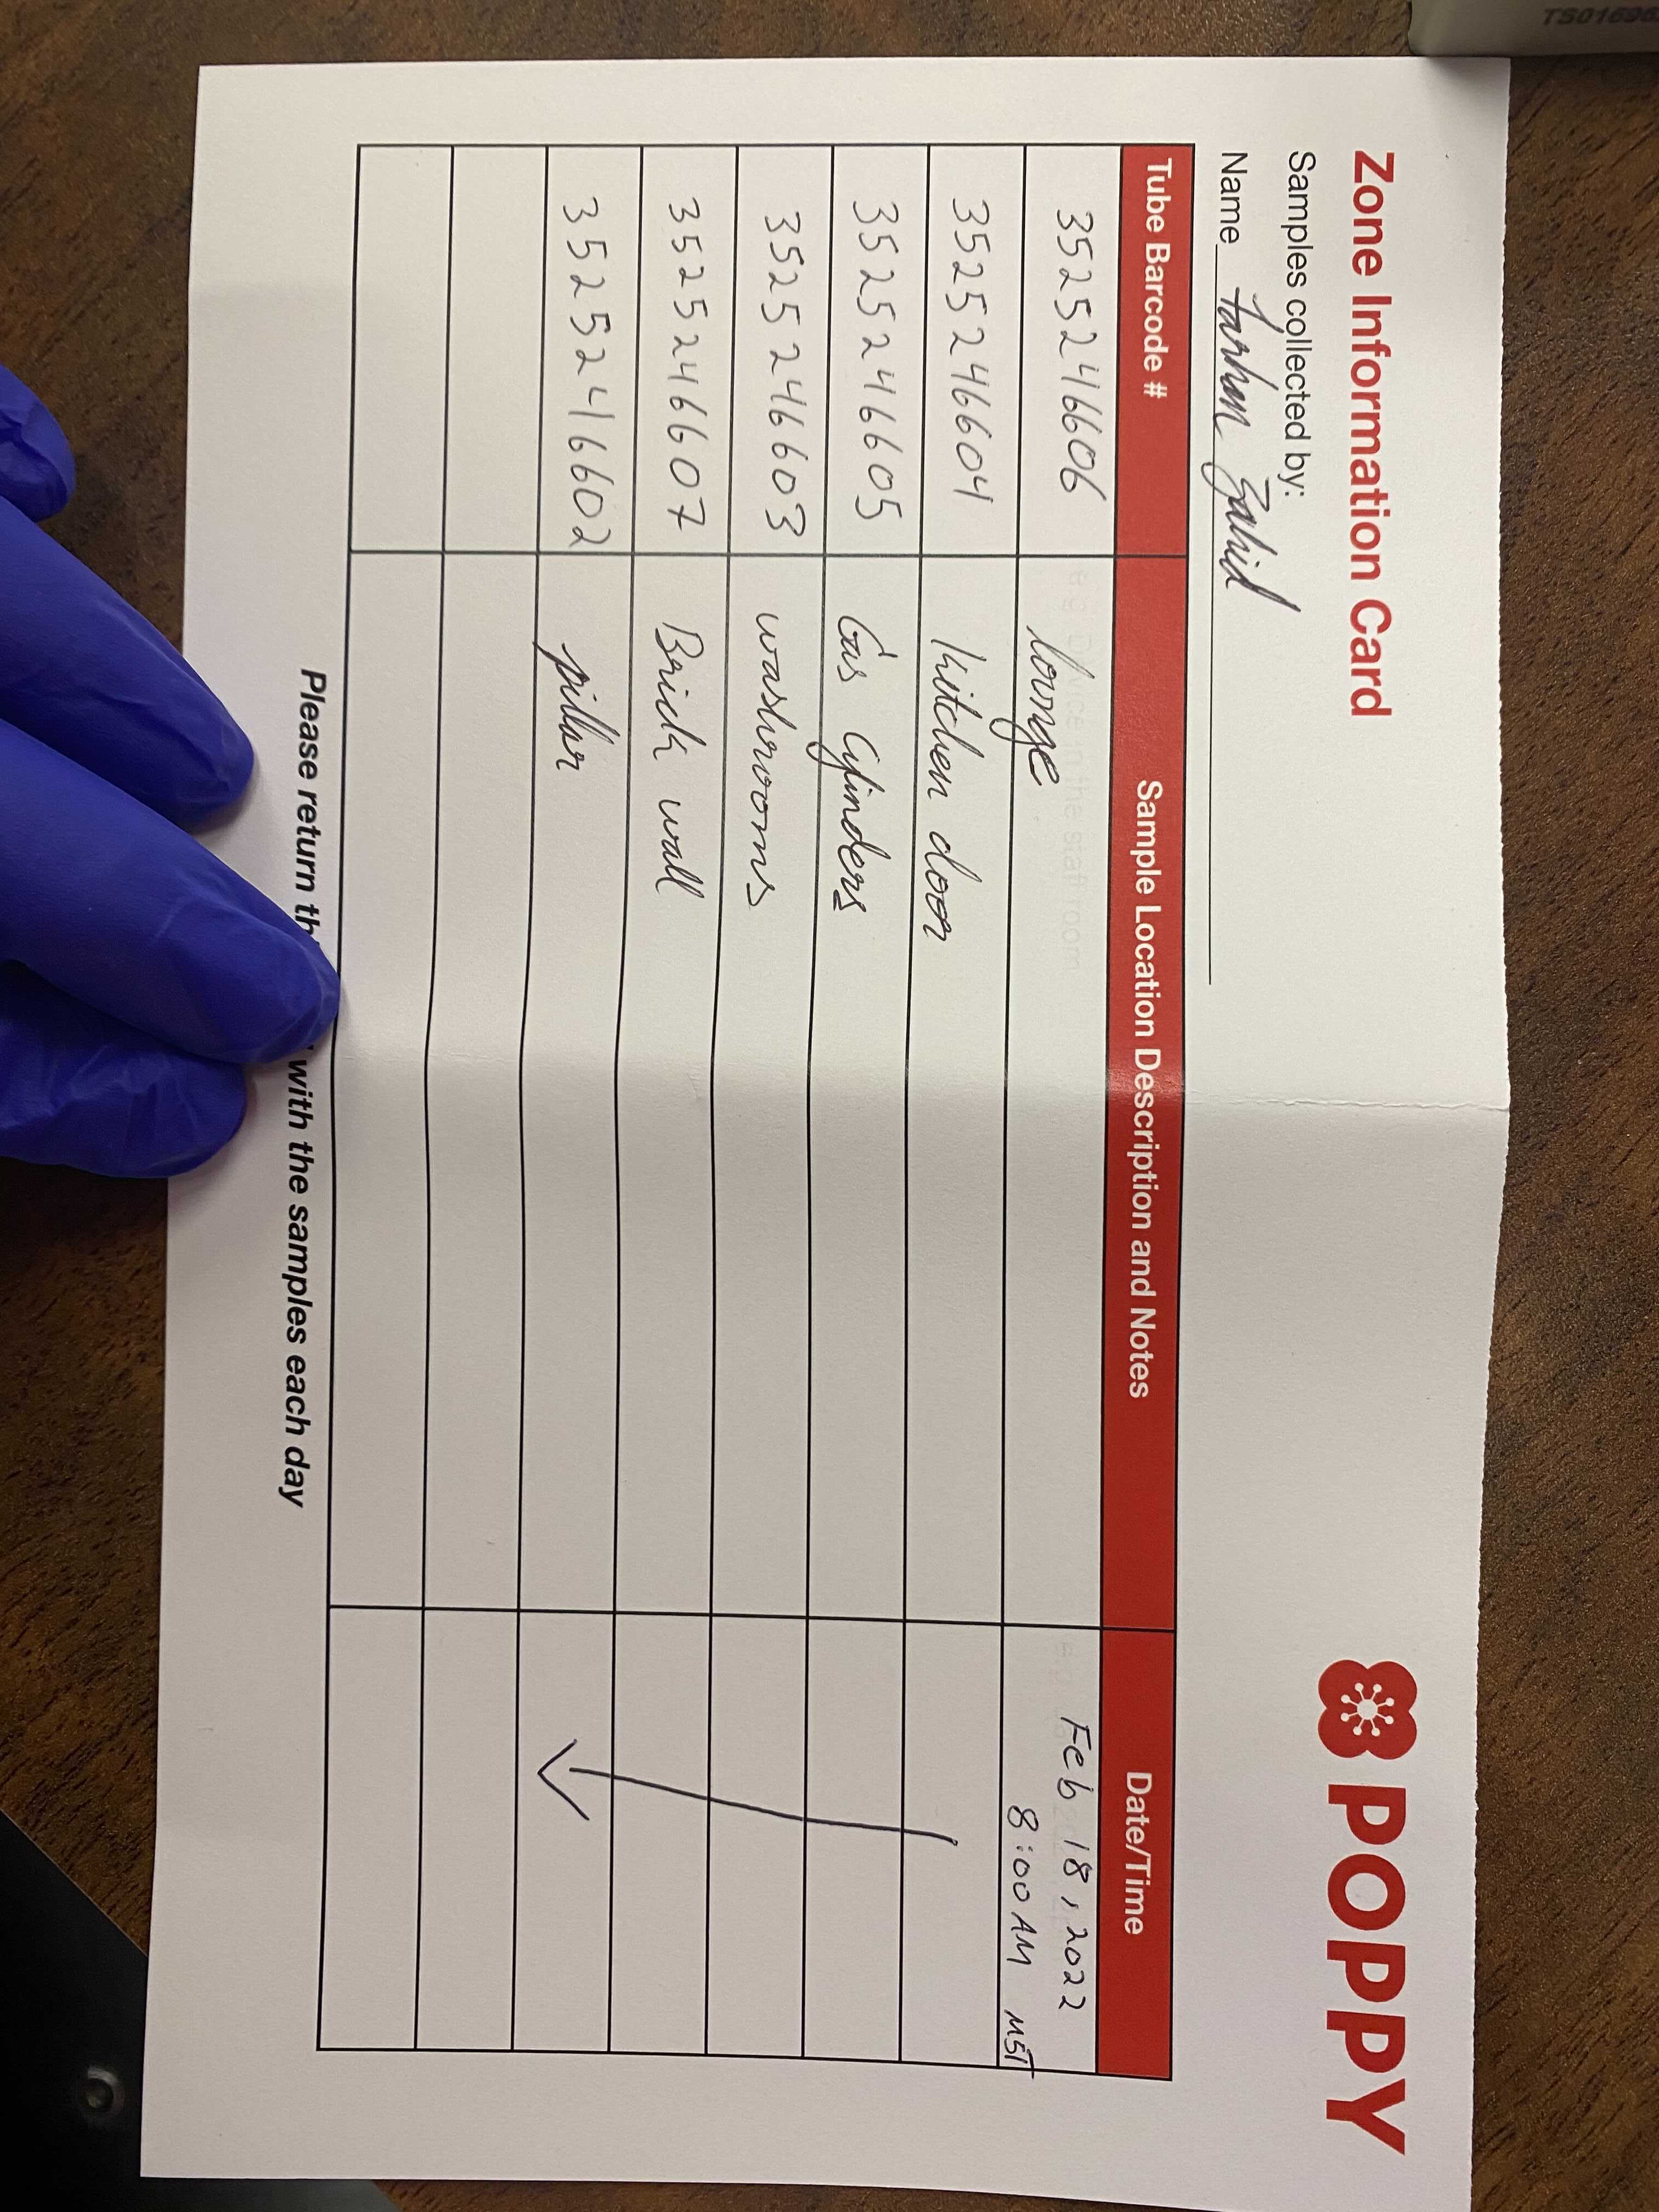 TS01696
Zone Information Card
POPPY
Samples collected by:
Name Farhan Zahid
Tube Barcode # Sample Location Description and Notes Date/Time
3525246606 lounge Feb 18, 2022
8:00 AM MST
3525246604 Kitchen door
3525246605 Gas Cylinders
3525246603 washrooms
3525246607 Brick wall
3525246602 pillar
Please return with the samples each day